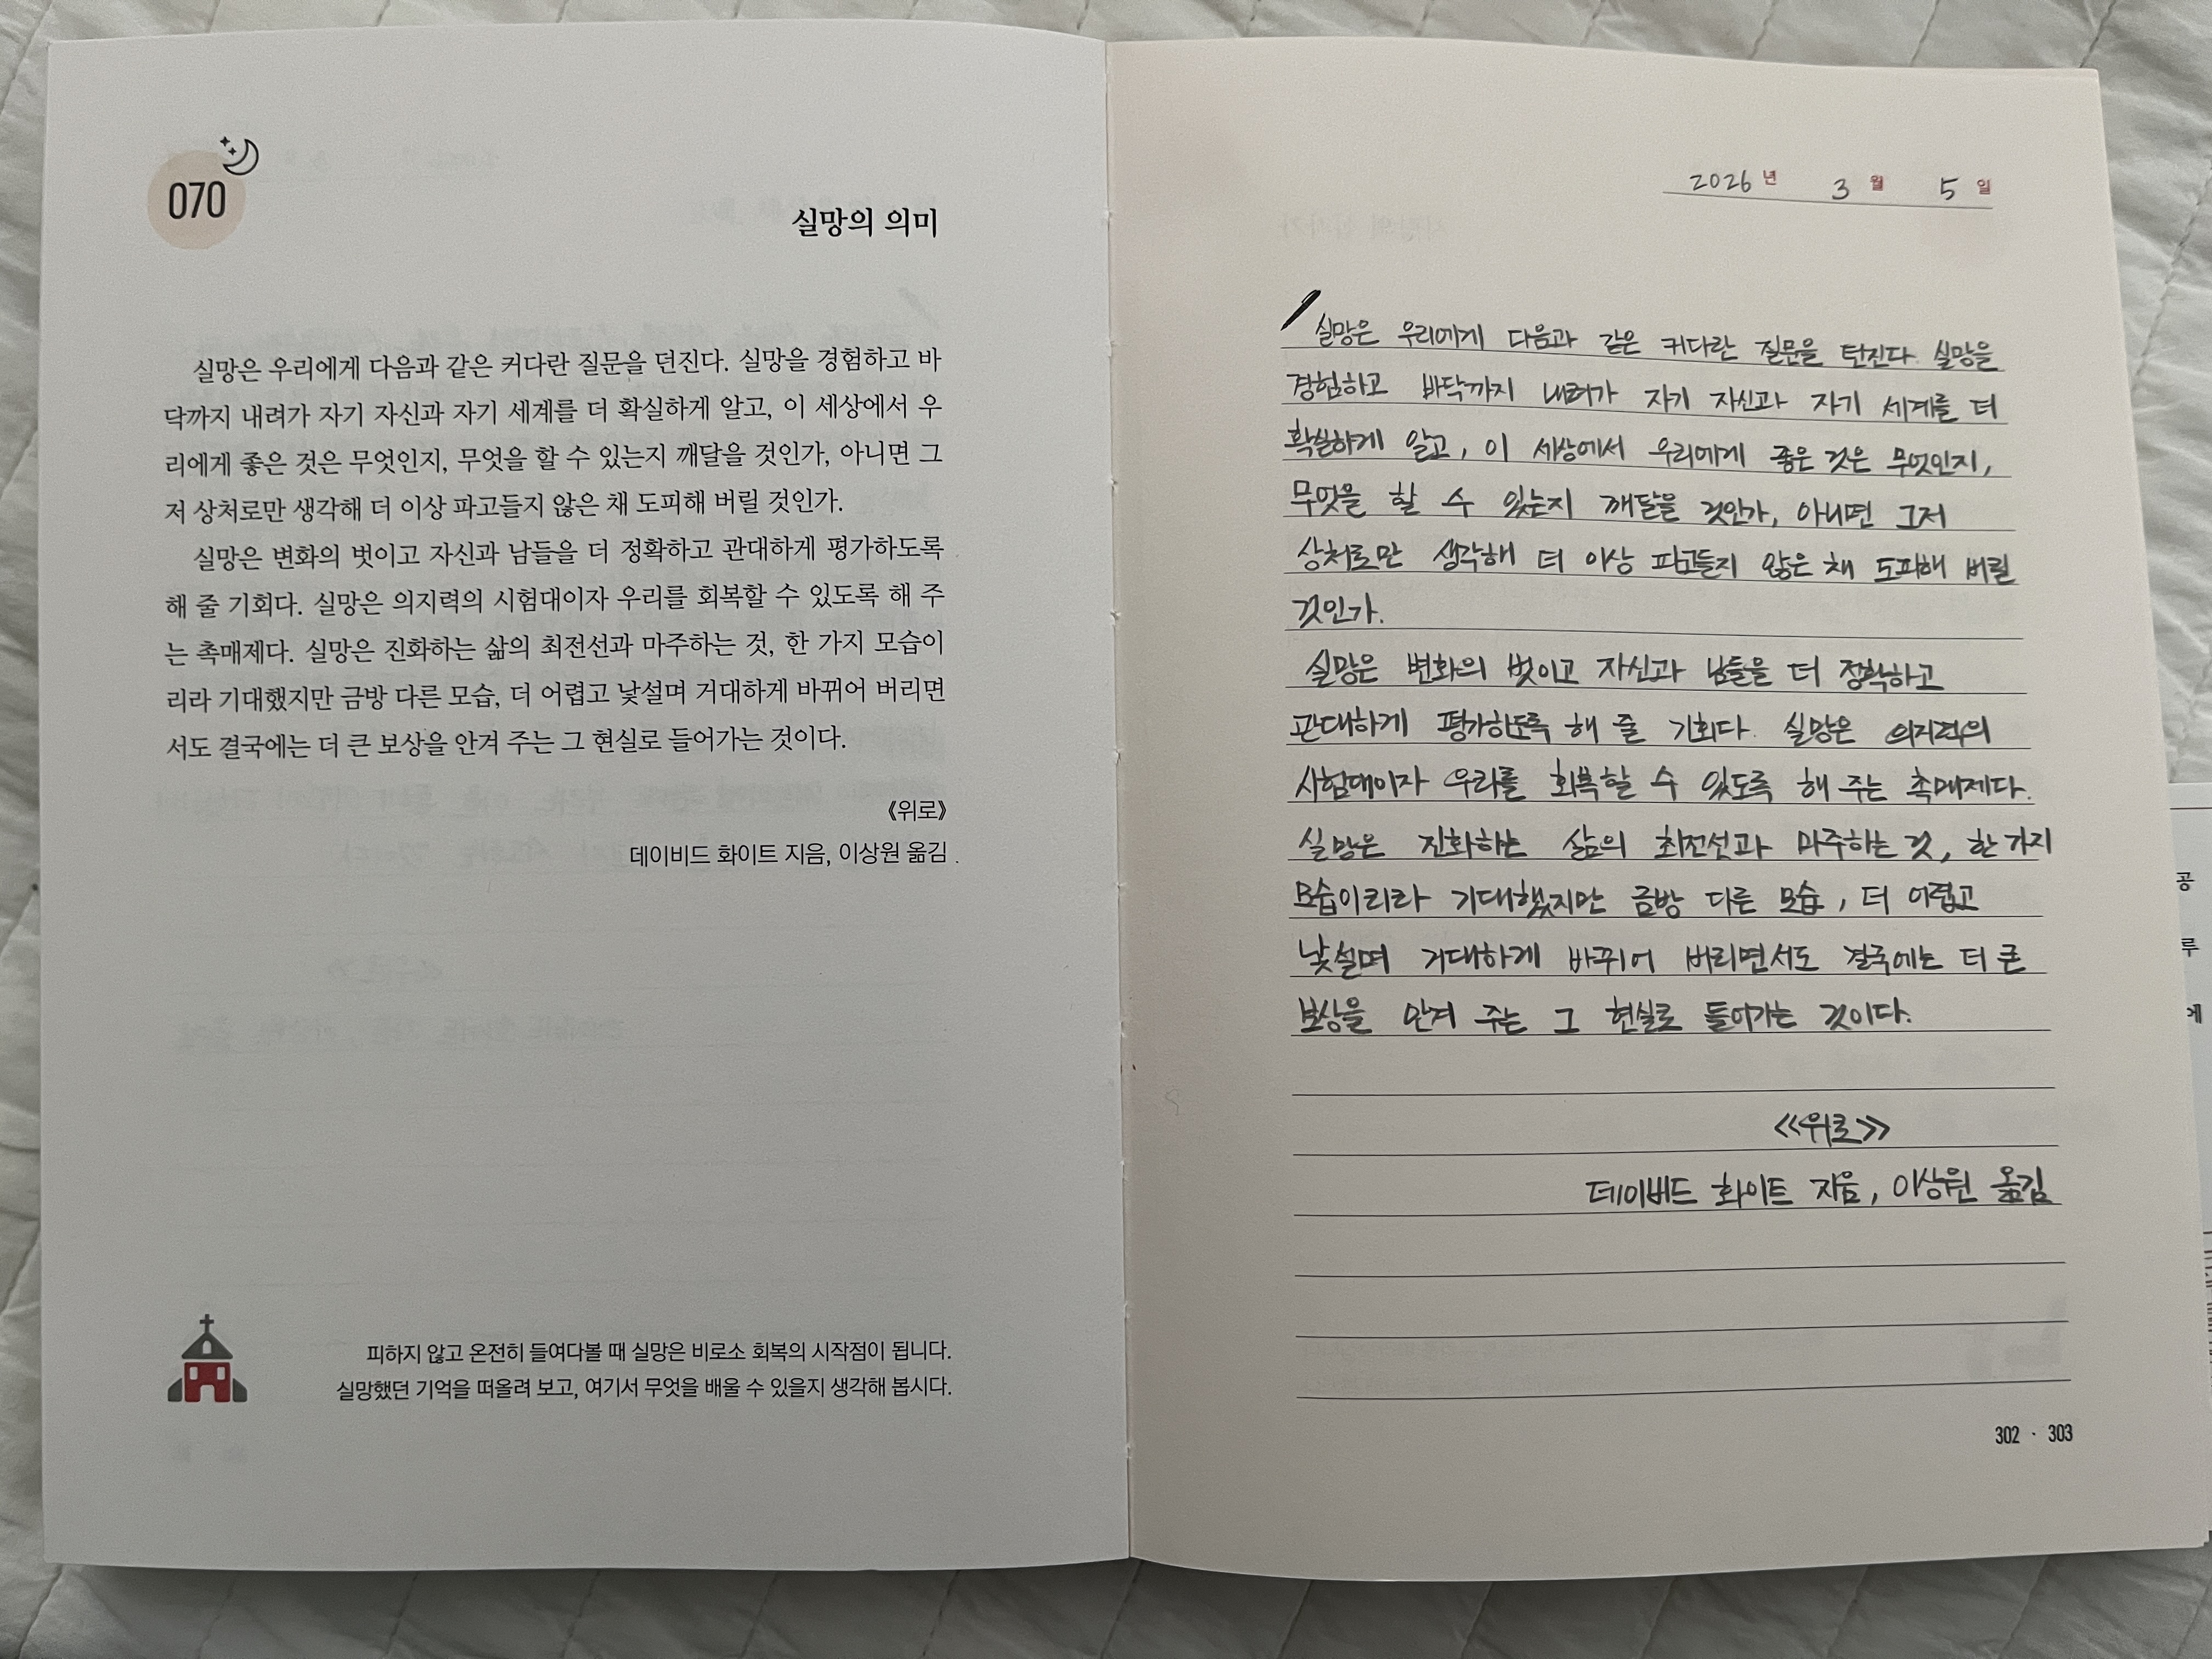 070
실망의 의미
실망은 우리에게 다음과 같은 커다란 질문을 던진다. 실망을 경험하고 바
닥까지 내려가 자기 자신과 자기 세계를 더 확실하게 알고, 이 세상에서 우
리에게 좋은 것은 무엇인지, 무엇을 할 수 있는지 깨달을 것인가, 아니면 그
저 상처로만 생각해 더 이상 파고들지 않은 채 도피해 버릴 것인가.
실망은 변화의 벗이고 자신과 남들을 더 정확하고 관대하게 평가하도록
해 줄 기회다. 실망은 의지력의 시험대이자 우리를 회복할 수 있도록 해 주
는 촉매제다. 실망은 진화하는 삶의 최전선과 마주하는 것, 한 가지 모습이
리라 기대했지만 금방 다른 모습, 더 어렵고 낯설며 거대하게 바뀌어 버리면
서도 결국에는 더 큰 보상을 안겨 주는 그 현실로 들어가는 것이다.
《위로》
데이비드 화이트 지음, 이상원 옮김
피하지 않고 온전히 들여다볼 때 실망은 비로소 회복의 시작점이 됩니다.
실망했던 기억을 떠올려 보고, 여기서 무엇을 배울 수 있을지 생각해 봅시다.
2026년 3월 5일
실망은 우리에게 다음과 같은 커다란 질문을 던진다. 실망을
경험하고 바닥까지 내려가 자기 자신과 자기 세계를 더
확실하게 알고, 이 세상에서 우리에게 좋은 것은 무엇인지,
무엇을 할 수 있는지 깨달을 것인가, 아니면 그저
상처로만 생각해 더 이상 파고들지 않은 채 도피해 버릴
것인가.
실망은 변화의 벗이고 자신과 남들을 더 정확하고
관대하게 평가하도록 해 줄 기회다. 실망은 의지력의
시험대이자 우리를 회복할 수 있도록 해 주는 촉매제다.
실망은 진화하는 삶의 최전선과 마주하는 것, 한 가지
모습이리라 기대했지만 금방 다른 모습, 더 어렵고
낯설며 거대하게 바뀌어 버리면서도 결국에는 더 큰
보상을 안겨 주는 그 현실로 들어가는 것이다.
<<위로>>
데이비드 화이트 지음, 이상원 옮김
302 · 303
공
루
에